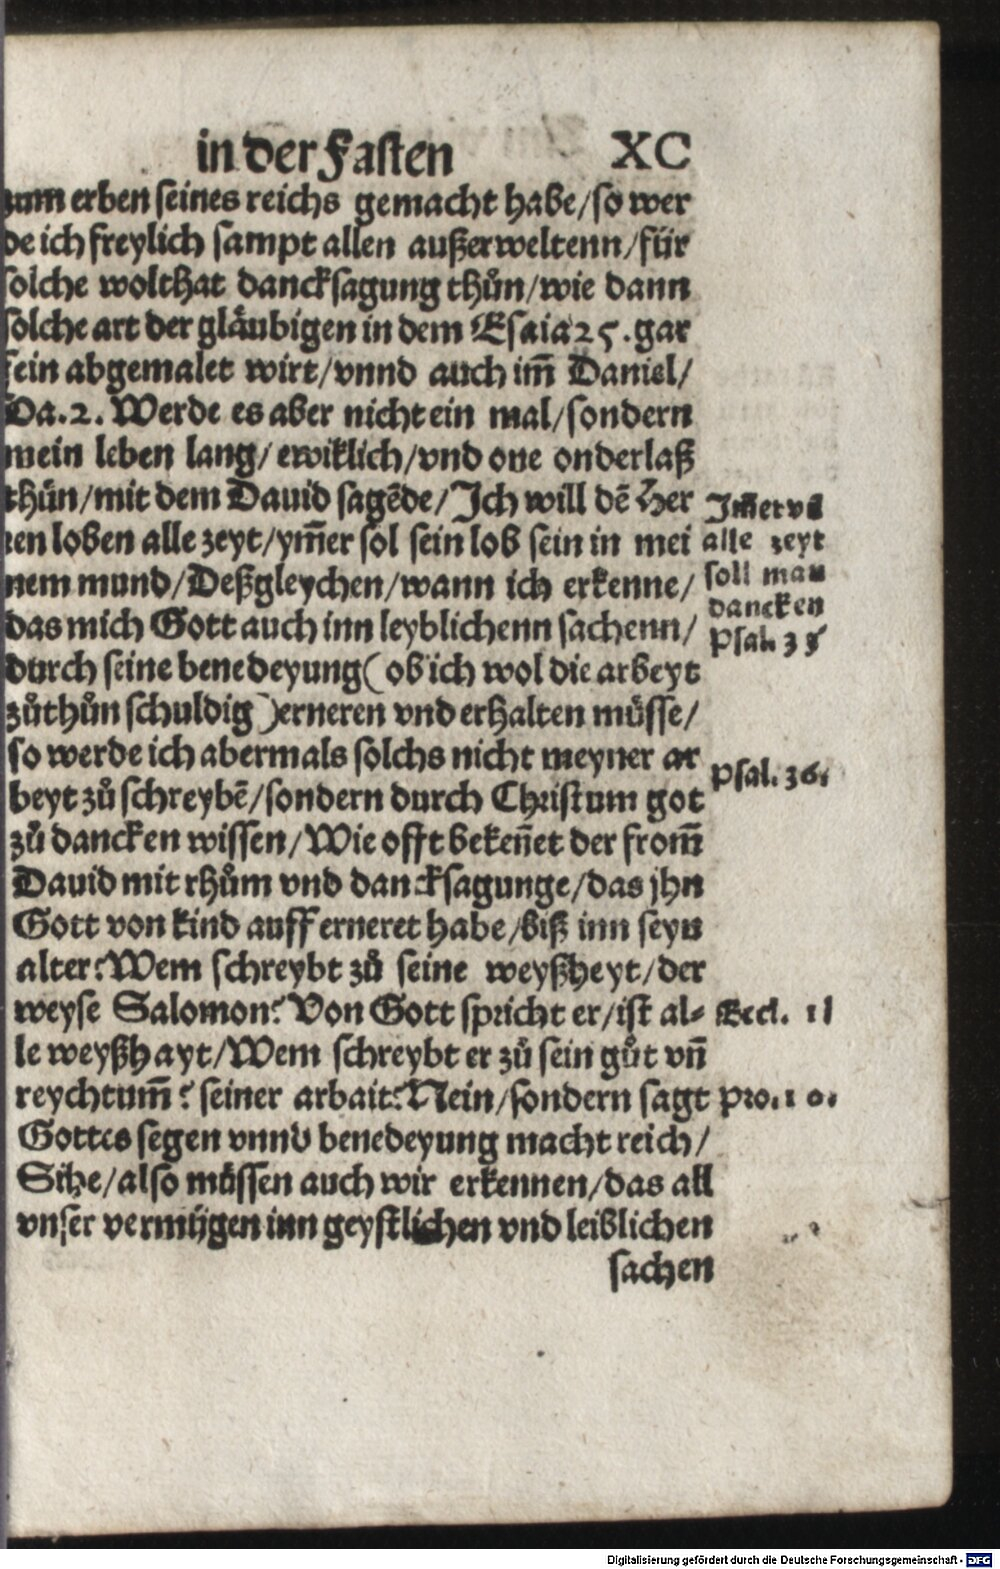 in der Fasten XC
zum erben seines reichs gemacht habe/so wer
de ich freylich sampt allen außerweltenn/für
solche wolthat dancksagung thůn/wie dann
solche art der gläubigen in dem Esaia 25. gar
fein abgemalet wirt/vnnd auch im̃ Daniel/
Da. 2. Werde es aber nicht ein mal/sondern
mein leben lang/ ewiklich/vnd one onderlaß
thůn/mit dem Dauid sagẽde/Ich will dẽ Her
ren loben alle zeyt/ym̃er sol sein lob sein in mei
nem mund/Deßgleychen/wann ich erkenne/
das mich Gott auch inn leyblichenn sachenn/
durch seine benedeyung(ob ich wol die arbeyt
zůthůn schuldig)erneren vnd erhalten müsse/
so werde ich abermals solchs nicht meyner ar
beyt zů schreybẽ/sondern durch Christum got
zů dancken wissen/Wie offt bekeñet der from̃
Dauid mit rhům vnd dancksagunge/das jhn
Gott von kind auff erneret habe/biß inn seyn
alter? Wem schreybt zů seine weyßheyt/der
weyse Salomon? Von Gott spricht er/ist al-
le weyßhayt/Wem schreybt er zů sein gůt vñ
reychtum̃? seiner arbait? Nein/sondern sagt
Gottes segen vnnd benedeyung macht reich/
Sihe/also müssen auch wir erkennen/das all
vnser vermügen inn geystlichen vnd leiblichen
sachen
Im̃er vñ
alle zeyt
soll man
dancken
Psal. 33
Psal. 36.
Eccl. 11
Pro. 10.
Digitalisierung gefördert durch die Deutsche Forschungsgemeinschaft - DFG